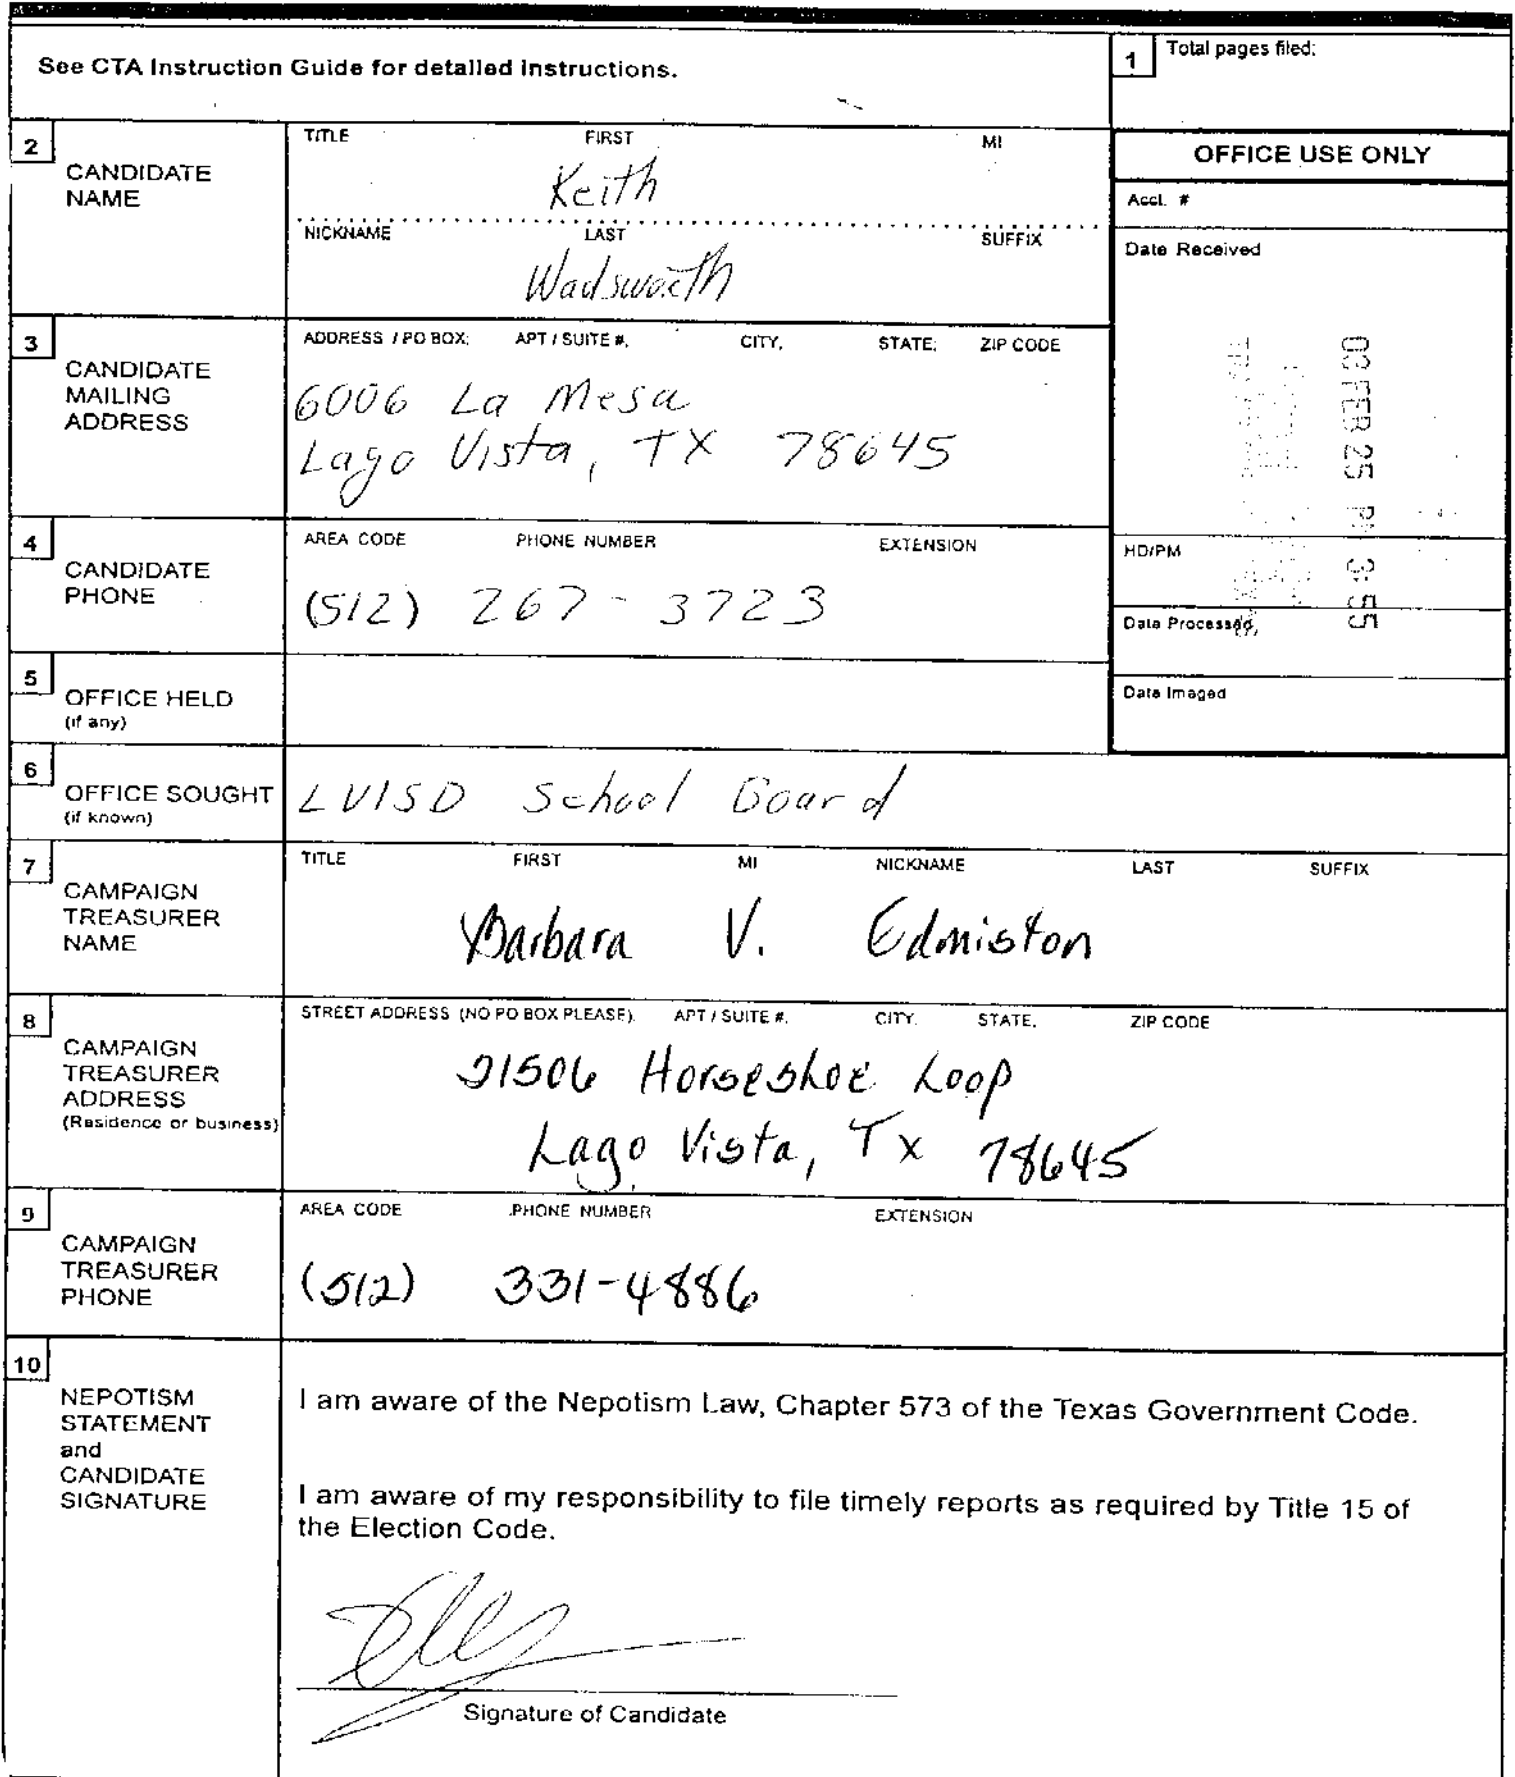 See CTA Instruction Guide for detailed instructions.
1 Total pages filed:
2 CANDIDATE NAME
TITLE FIRST MI
Keith
NICKNAME LAST SUFFIX
Wadsworth
OFFICE USE ONLY
Acct. #
Date Received
03 FEB 25 PM 3:55
HD/PM
Date Processed
Date Imaged
3 CANDIDATE MAILING ADDRESS
ADDRESS / PO BOX; APT / SUITE #, CITY, STATE; ZIP CODE
6006 La Mesa
Lago Vista, TX 78645
4 CANDIDATE PHONE
AREA CODE PHONE NUMBER EXTENSION
(512) 267-3723
5 OFFICE HELD
(if any)
6 OFFICE SOUGHT
(if known)
LVISD School Board
7 CAMPAIGN TREASURER NAME
TITLE FIRST MI NICKNAME LAST SUFFIX
Barbara V. Edmiston
8 CAMPAIGN TREASURER ADDRESS
(Residence or business)
STREET ADDRESS (NO PO BOX PLEASE). APT / SUITE #, CITY. STATE, ZIP CODE
21506 Horseshoe Loop
Lago Vista, Tx 78645
9 CAMPAIGN TREASURER PHONE
AREA CODE PHONE NUMBER EXTENSION
(512) 331-4886
10 NEPOTISM STATEMENT and CANDIDATE SIGNATURE
I am aware of the Nepotism Law, Chapter 573 of the Texas Government Code.
I am aware of my responsibility to file timely reports as required by Title 15 of
the Election Code.
Signature of Candidate